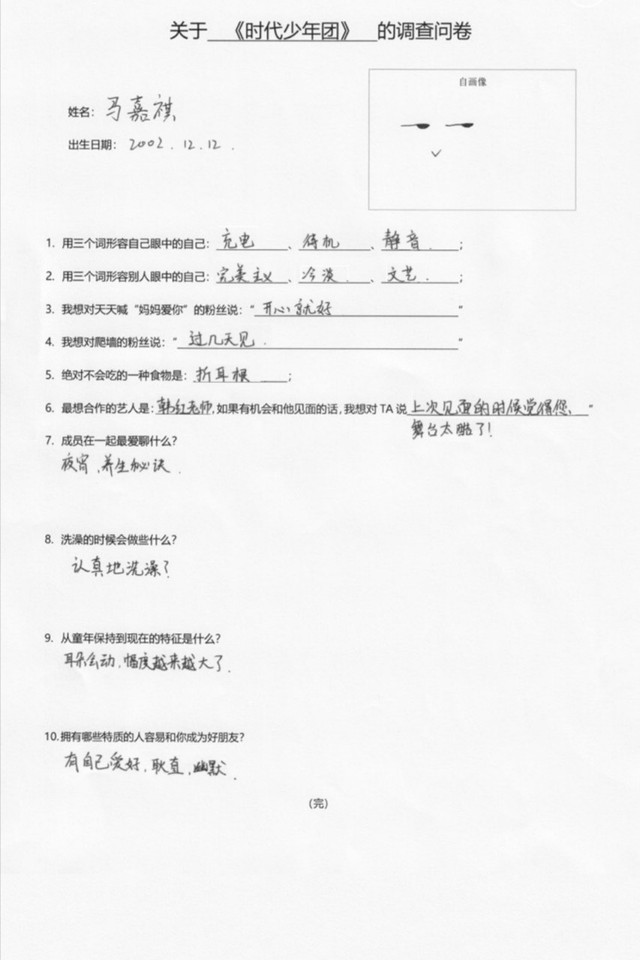 关于 《时代少年团》 的调查问卷
自画像
姓名：马嘉祺
出生日期：2002.12.12.
1. 用三个词形容自己眼中的自己：充电、待机、静音.；
2. 用三个词形容别人眼中的自己：完美主义、冷淡.、文艺.；
3. 我想对天天喊“妈妈爱你”的粉丝说：“开心就好”
4. 我想对爬墙的粉丝说：“过几天见.”
5. 绝对不会吃的一种食物是：折耳根；
6. 最想合作的艺人是：韩红老师，如果有机会和他见面的话，我想对 TA 说 上次见面的时候觉得您、”
舞台太酷了！
7. 成员在一起最爱聊什么？
夜宵，养生秘诀.
8. 洗澡的时候会做些什么？
认真地洗澡？
9. 从童年保持到现在的特征是什么？
耳朵会动，幅度越来越大了.
10. 拥有哪些特质的人容易和你成为好朋友？
有自己爱好，耿直，幽默.
（完）